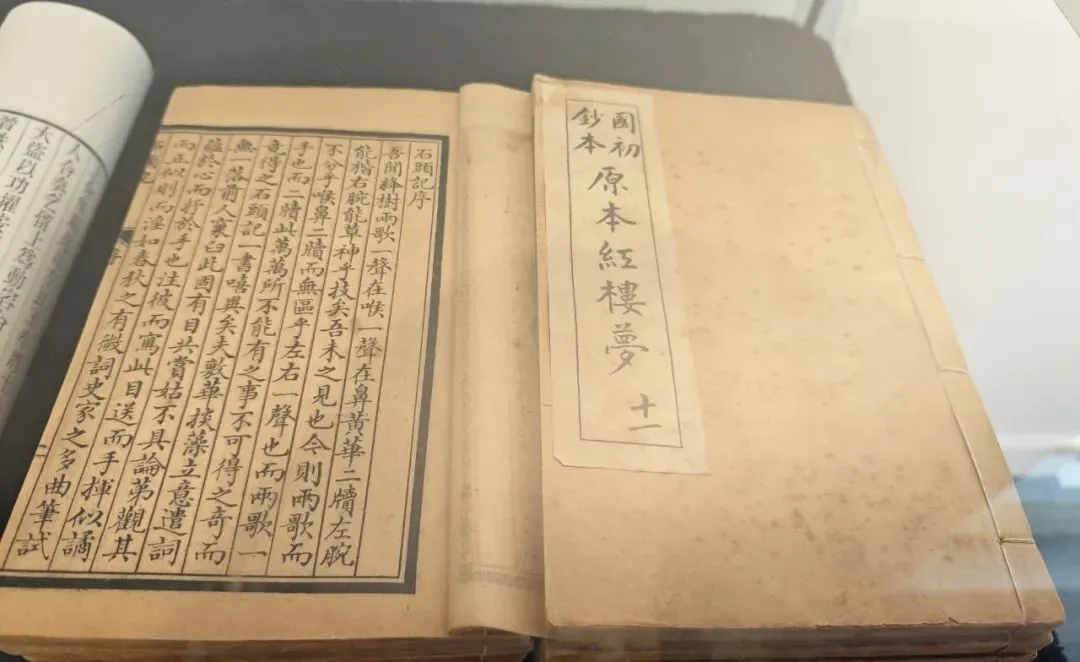 國初
鈔本
原本紅樓夢
十一
石頭記序
吾聞絳樹兩歌一聲在喉一聲在鼻黃華二牘左腕
能楷右腕能草神乎技矣吾未之見也今則兩歌而
不分乎喉鼻二牘而無區乎左右一聲也而兩歌一
手也而二牘此萬萬所不能有之事不可得之奇而
竟得之石頭記一書嘻異矣夫敷華掞藻立意遣詞
無一落前人窠臼此固有目共賞姑不具論第觀其
蘊於心而抒於手也注彼而寫此目送而手揮似譎
而正似則而淫如春秋之有微詞史家之多曲筆試